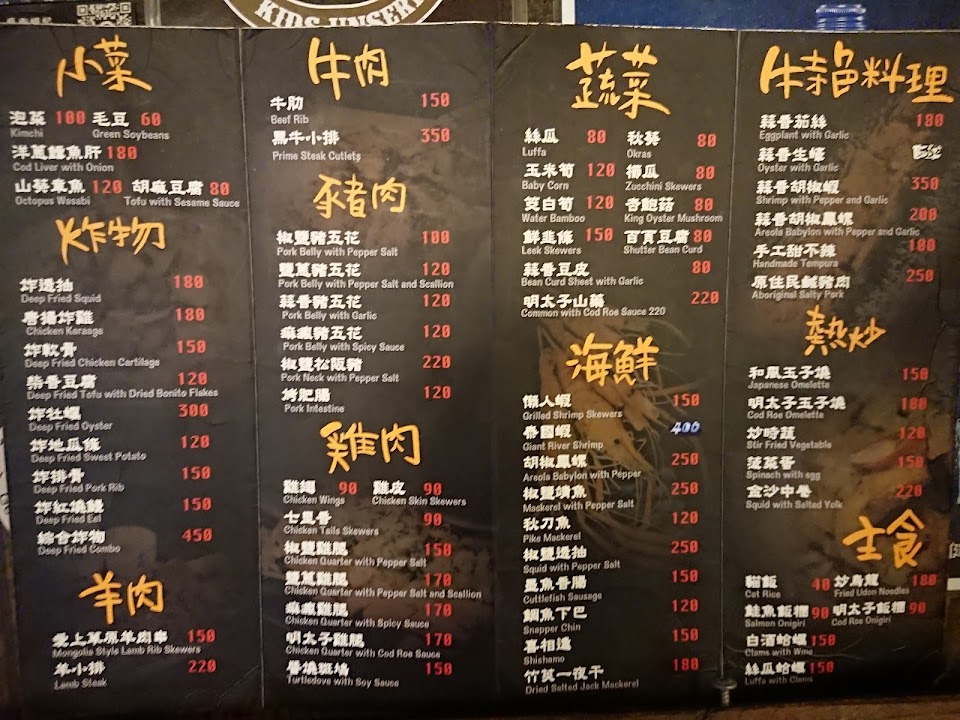 KIDS UNSER
小菜
泡菜 100 毛豆 60
Kimchi Green Soybeans
洋蔥鱈魚肝 180
Cod Liver with Onion
山葵章魚 120 胡麻豆腐 80
Octopus Wasabi Tofu with Sesame Sauce
炸物
炸透抽 180
Deep Fried Squid
唐揚炸雞 180
Chicken Karaage
炸軟骨 150
Deep Fried Chicken Cartilage
柴香豆腐 120
Deep Fried Tofu with Dried Bonito Flakes
炸牡蠣 300
Deep Fried Oyster
炸地瓜條 120
Deep Fried Sweet Potato
炸排骨 150
Deep Fried Pork Rib
炸紅燒鰻 150
Deep Fried Eel
綜合炸物 450
Deep Fried Combo
羊肉
愛上草原羊肉串 150
Mongolia Style Lamb Rib Skewers
羊小排 220
Lamb Steak
牛肉
牛肋 150
Beef Rib
黑牛小排 350
Prime Steak Cutlets
豬肉
椒鹽豬五花 100
Pork Belly with Pepper Salt
鹽蔥豬五花 120
Pork Belly with Pepper Salt and Scallion
蒜香豬五花 120
Pork Belly with Garlic
麻瘋豬五花 120
Pork Belly with Spicy Sauce
椒鹽松阪豬 220
Pork Neck with Pepper Salt
烤肥腸 120
Pork Intestine
雞肉
雞翅 90 雞皮 90
Chicken Wings Chicken Skin Skewers
七里香 90
Chicken Tails Skewers
椒鹽雞腿 150
Chicken Quarter with Pepper Salt
鹽蔥雞腿 170
Chicken Quarter with Pepper Salt and Scallion
麻瘋雞腿 170
Chicken Quarter with Spicy Sauce
明太子雞腿 170
Chicken Quarter with Cod Roe Sauce
醬燒斑鳩 150
Turtledove with Soy Sauce
蔬菜
絲瓜 80 秋葵 80
Luffa Okras
玉米筍 120 櫛瓜 80
Baby Corn Zucchini Skewers
筊白筍 120 杏鮑菇 80
Water Bamboo King Oyster Mushroom
鮮韭條 150 百頁豆腐 80
Leek Skewers Shutter Bean Curd
蒜香豆皮 80
Bean Curd Sheet with Garlic
明太子山藥 220
Common with Cod Roe Sauce 220
海鮮
懶人蝦 150
Grilled Shrimp Skewers
泰國蝦 400
Giant River Shrimp
胡椒鳳螺 250
Areola Babylon with Pepper
椒鹽鯖魚 250
Mackerel with Pepper Salt
秋刀魚 120
Pike Mackerel
椒鹽透抽 250
Squid with Pepper Salt
墨魚香腸 150
Cuttlefish Sausage
鯛魚下巴 120
Snapper Chin
喜相逢 150
Shishamo
竹筴一夜干 180
Dried Salted Jack Mackerel
牛耄色料理
蒜香茄絲 180
Eggplant with Garlic
蒜香生蠔
Oyster with Garlic
蒜香胡椒蝦 350
Shrimp with Pepper and Garlic
蒜香胡椒鳳螺 200
Areola Babylon with Pepper and Garlic
手工甜不辣 180
Handmade Tempura
原住民鹹豬肉 250
Aboriginal Salty Pork
熱炒
和風玉子燒 150
Japanese Omelette
明太子玉子燒 180
Cod Roe Omelette
炒時蔬 120
Stir Fried Vegetable
菠菜香 150
Spinach with egg
金沙中卷 220
Squid with Salted Yolk
主食
貓飯 40 炒烏龍 180
Cat Rice Fried Udon Noodles
鮭魚飯糰 90 明太子飯糰 90
Salmon Onigiri Cod Roe Onigiri
白酒蛤蠣 150
Clams with Wine
絲瓜蛤蠣 150
Luffa with Clams